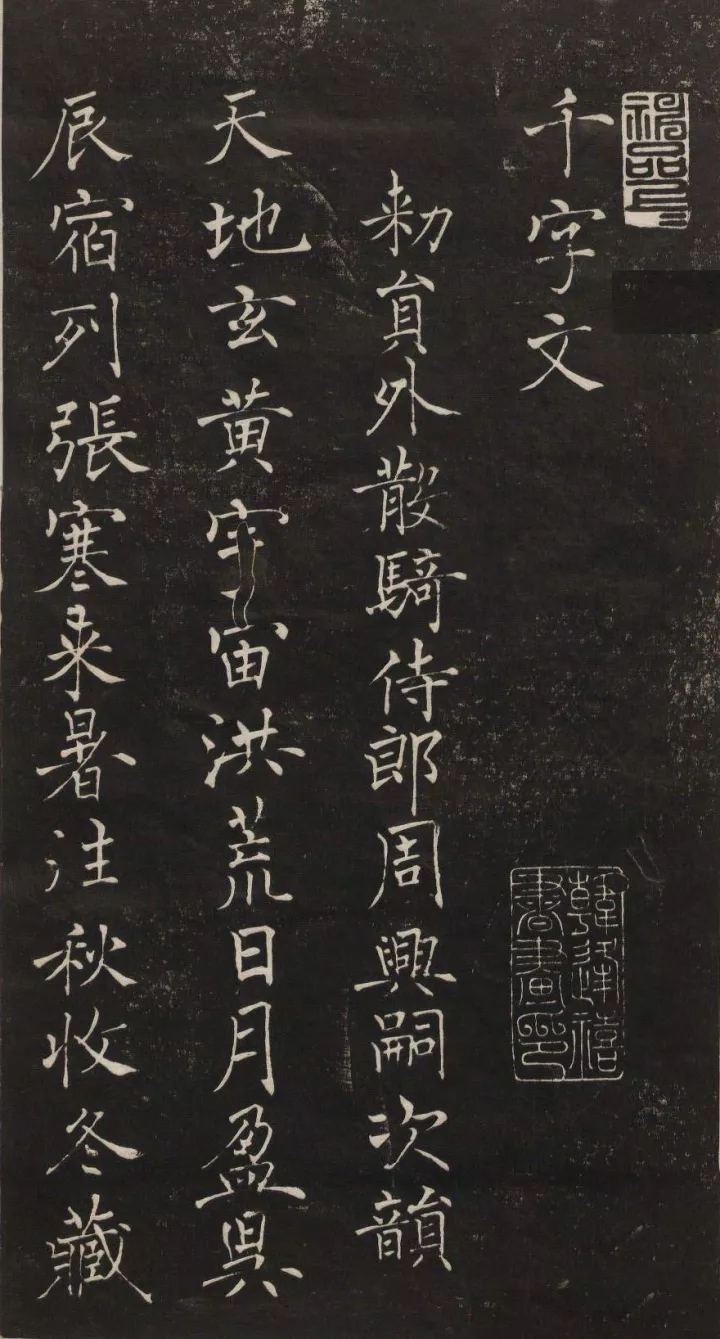 千字文
勑貟外散騎侍郎周興嗣次韻
天地玄黄宇宙洪荒日月盈昃
辰宿列張寒来暑往秋收冬藏
韓逢禧
書畫印